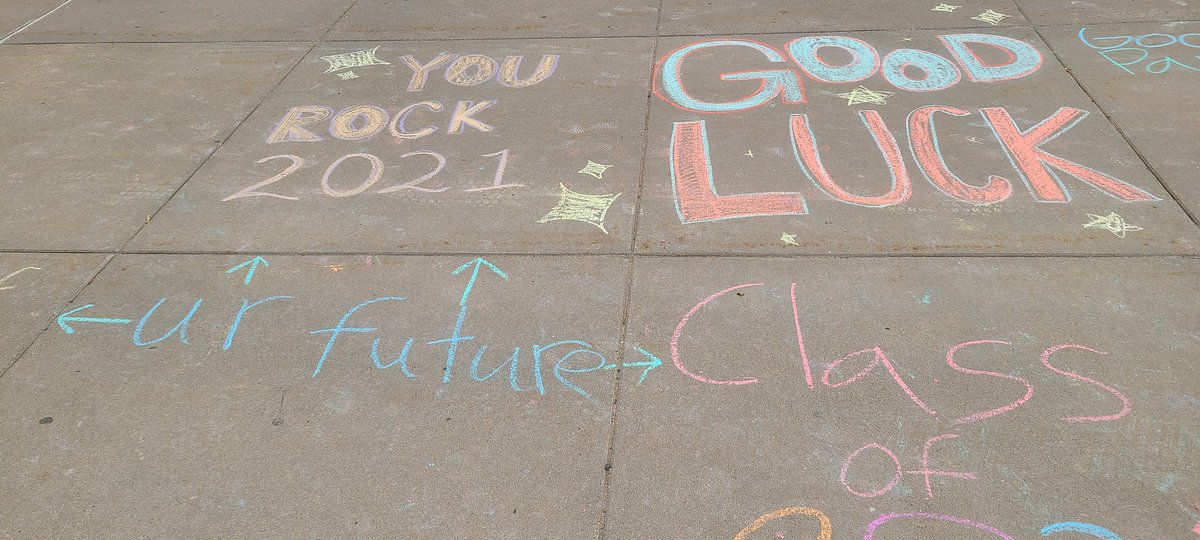 YOU
ROCK
2021
GOOD
LUCK
ur future
Class
of